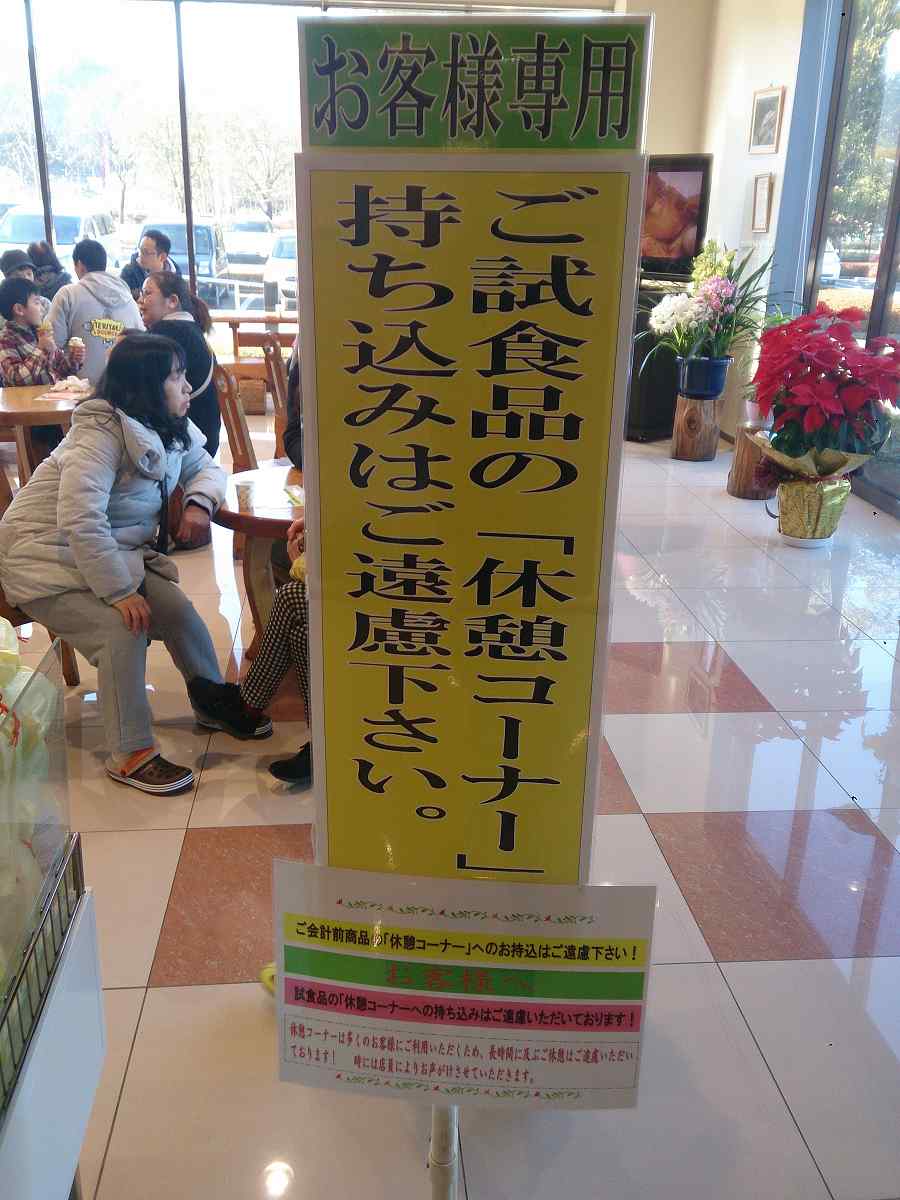 お客様専用
ご試食品の「休憩コーナー」
持ち込みはご遠慮下さい。
ご会計前商品の「休憩コーナー」へのお持込はご遠慮下さい！
お客様へ
試食品の「休憩コーナーへの持ち込みはご遠慮いただいております！
休憩コーナーは多くのお客様にご利用いただくため、長時間に及ぶご休憩はご遠慮いただい
ております！　時には店員によりお声がけさせていただきます。
TERIYAKI